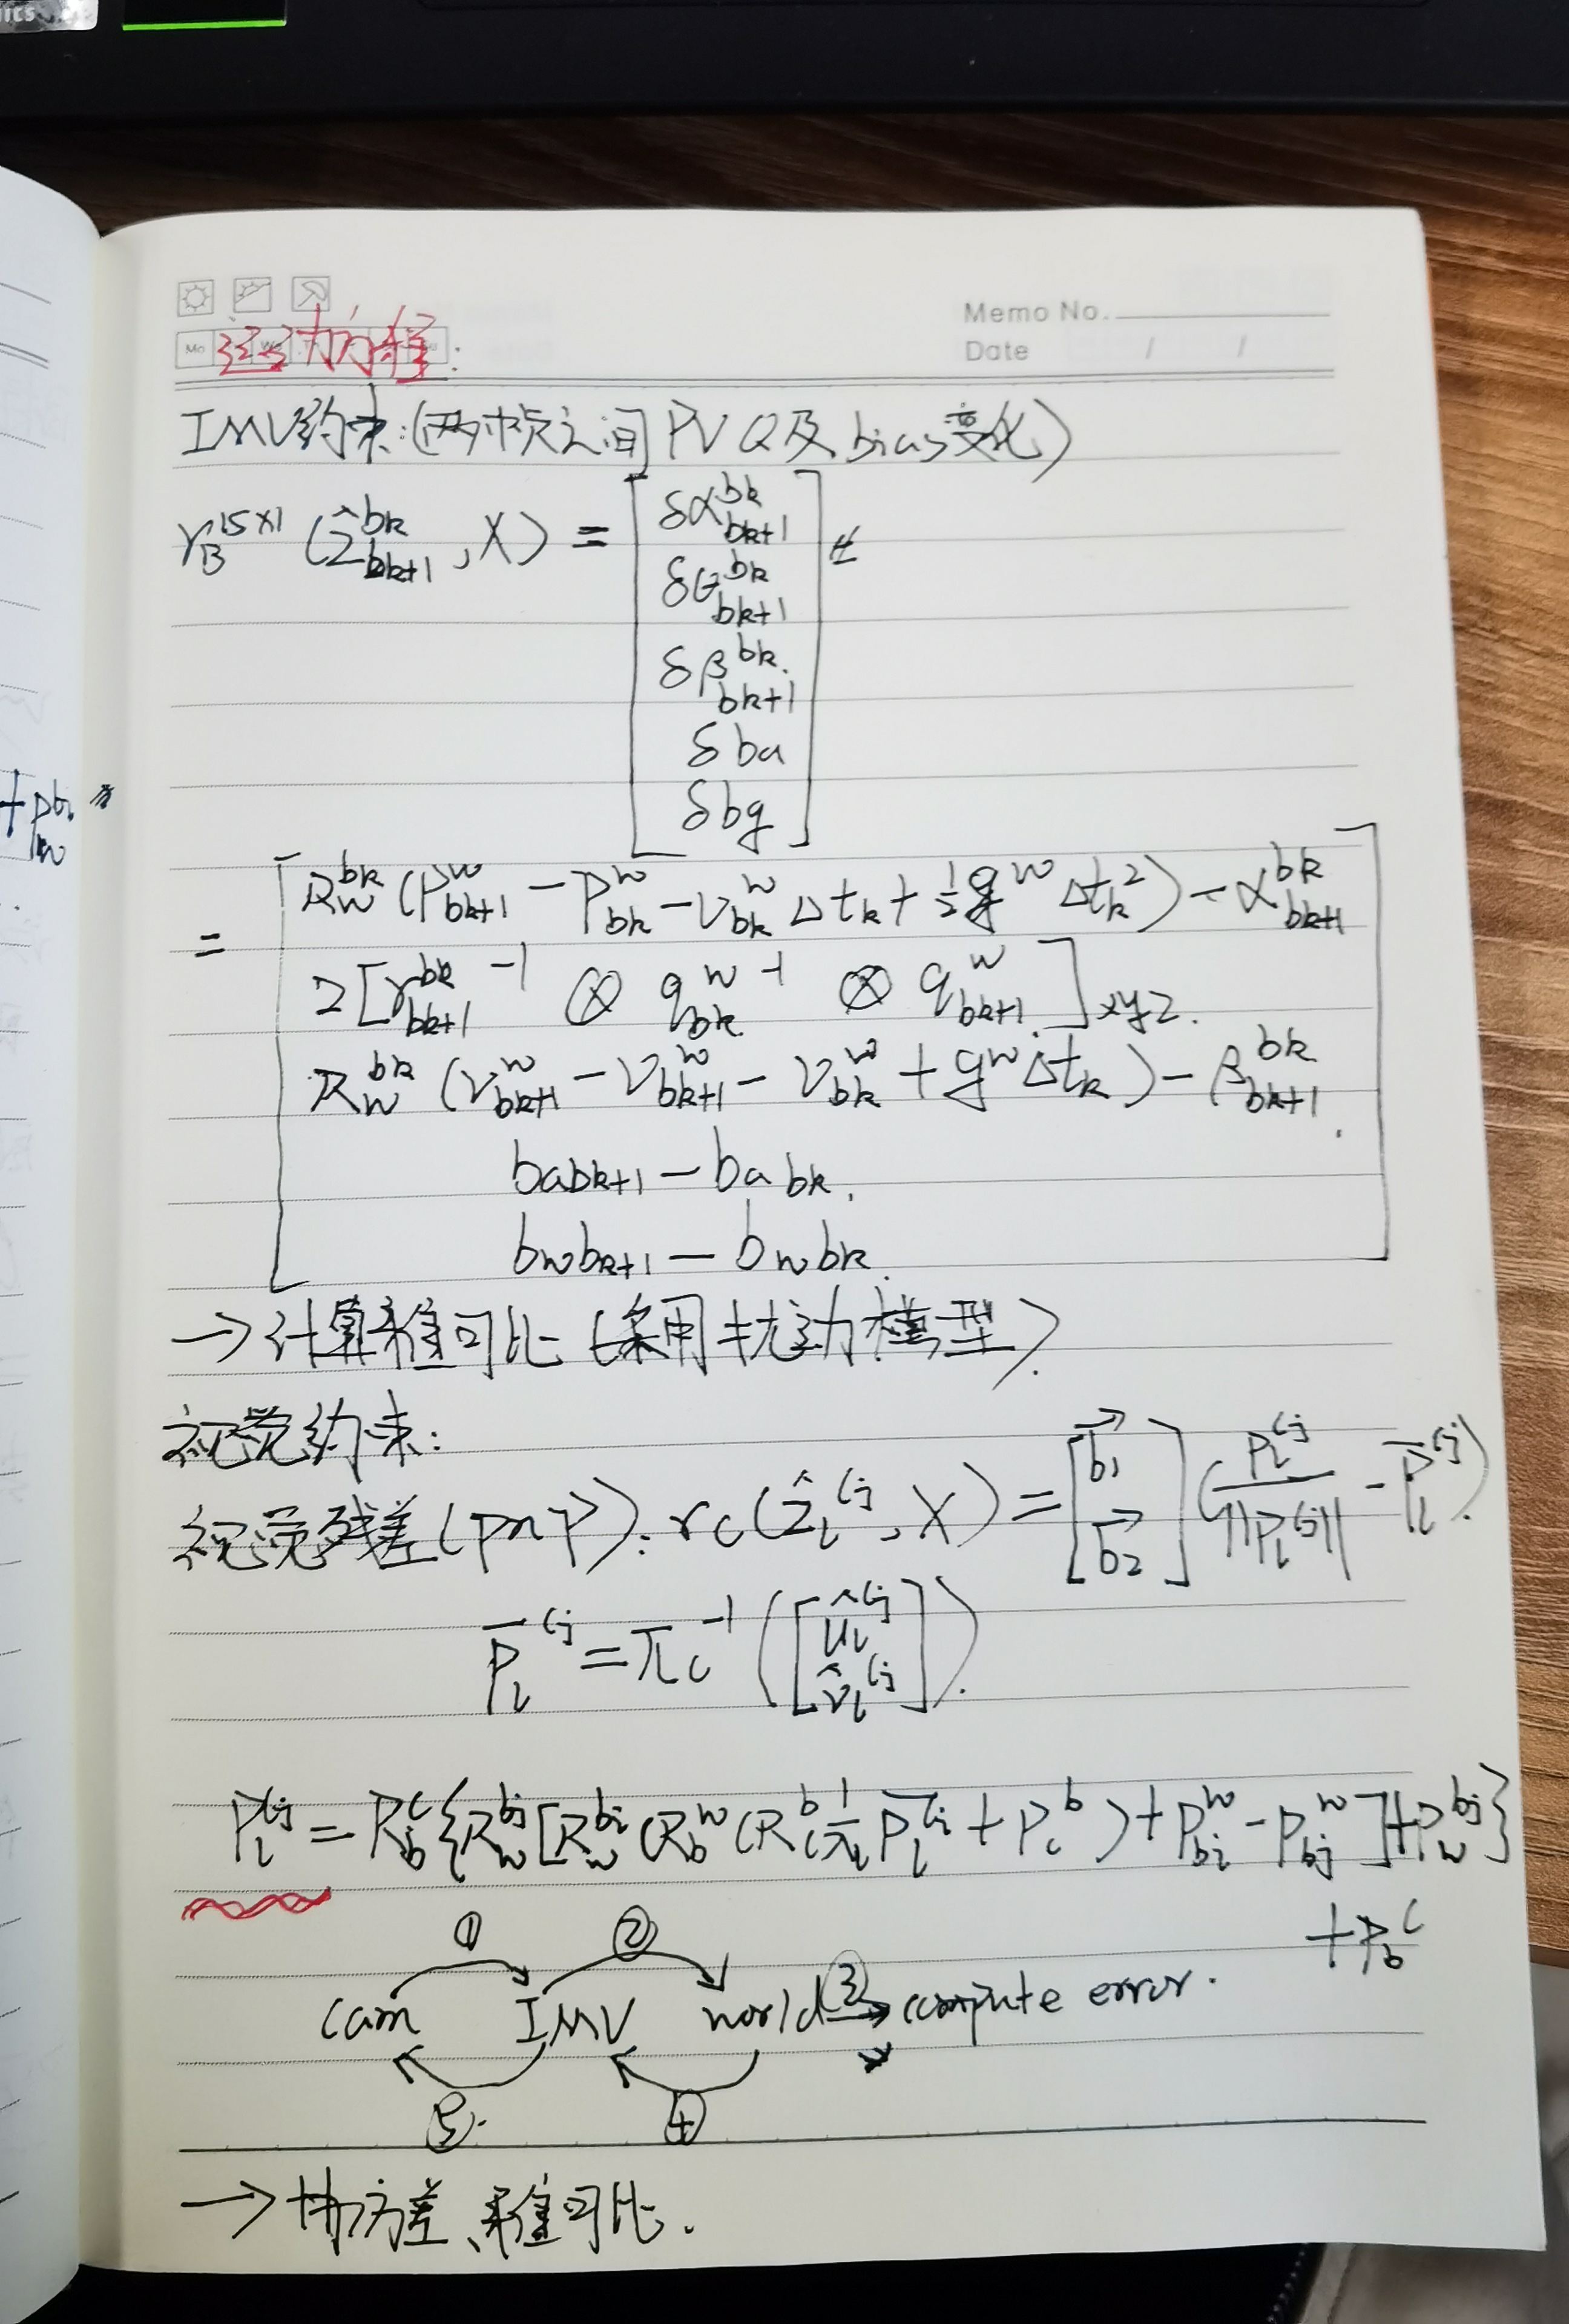 ics
Memo No.
Date / /
Mo
运动方程:
IMU约束:(两帧之间PVQ及bias变化)
r_B^{15×1} (ẑ_{bk+1}^{bk}, X) = [ δα_{bk+1}^{bk}
δθ_{bk+1}^{bk}
δβ_{bk+1}^{bk}
δba
δbg ]
+ p_w^{bi}
= [ R_w^{bk} (p_{bk+1}^w − p_{bk}^w − v_{bk}^w Δt_k + ½ g^w Δt_k^2) − α_{bk+1}^{bk}
2[ r_{bk+1}^{bk −1} ⊗ q_{bk}^{w −1} ⊗ q_{bk+1}^w ]_{xyz}.
R_w^{bk} (v_{bk+1}^w − v_{bk+1}^w − v_{bk}^w + g^w Δt_k) − β_{bk+1}^{bk}.
b_{a bk+1} − b_{a bk}.
b_{w bk+1} − b_{w bk}. ]
→计算雅可比(采用扰动模型).
视觉约束:
视觉残差(PnP): r_c(ẑ_l^{cj}, X) = [ b⃗_1 b⃗_2 ] ( P_l^{cj} / ||P_l^{cj}|| − P̄_l^{cj} ).
P̄_l^{cj} = π_c^{-1} ( [ û_l^{cj} v̂_l^{cj} ] ).
P_l^{cj} = R_b^c { R_w^{bj} [ R_w^{bi} ( R_b^w ( R_c^b 1/λ_l P̄_l^{ci} + P_c^b ) + P_{bi}^w − P_{bj}^w ] + P_w^{bj} }
+ P_b^c
① ②
cam IMU world ③ → compute error.
⑤. ④
→协方差、雅可比.